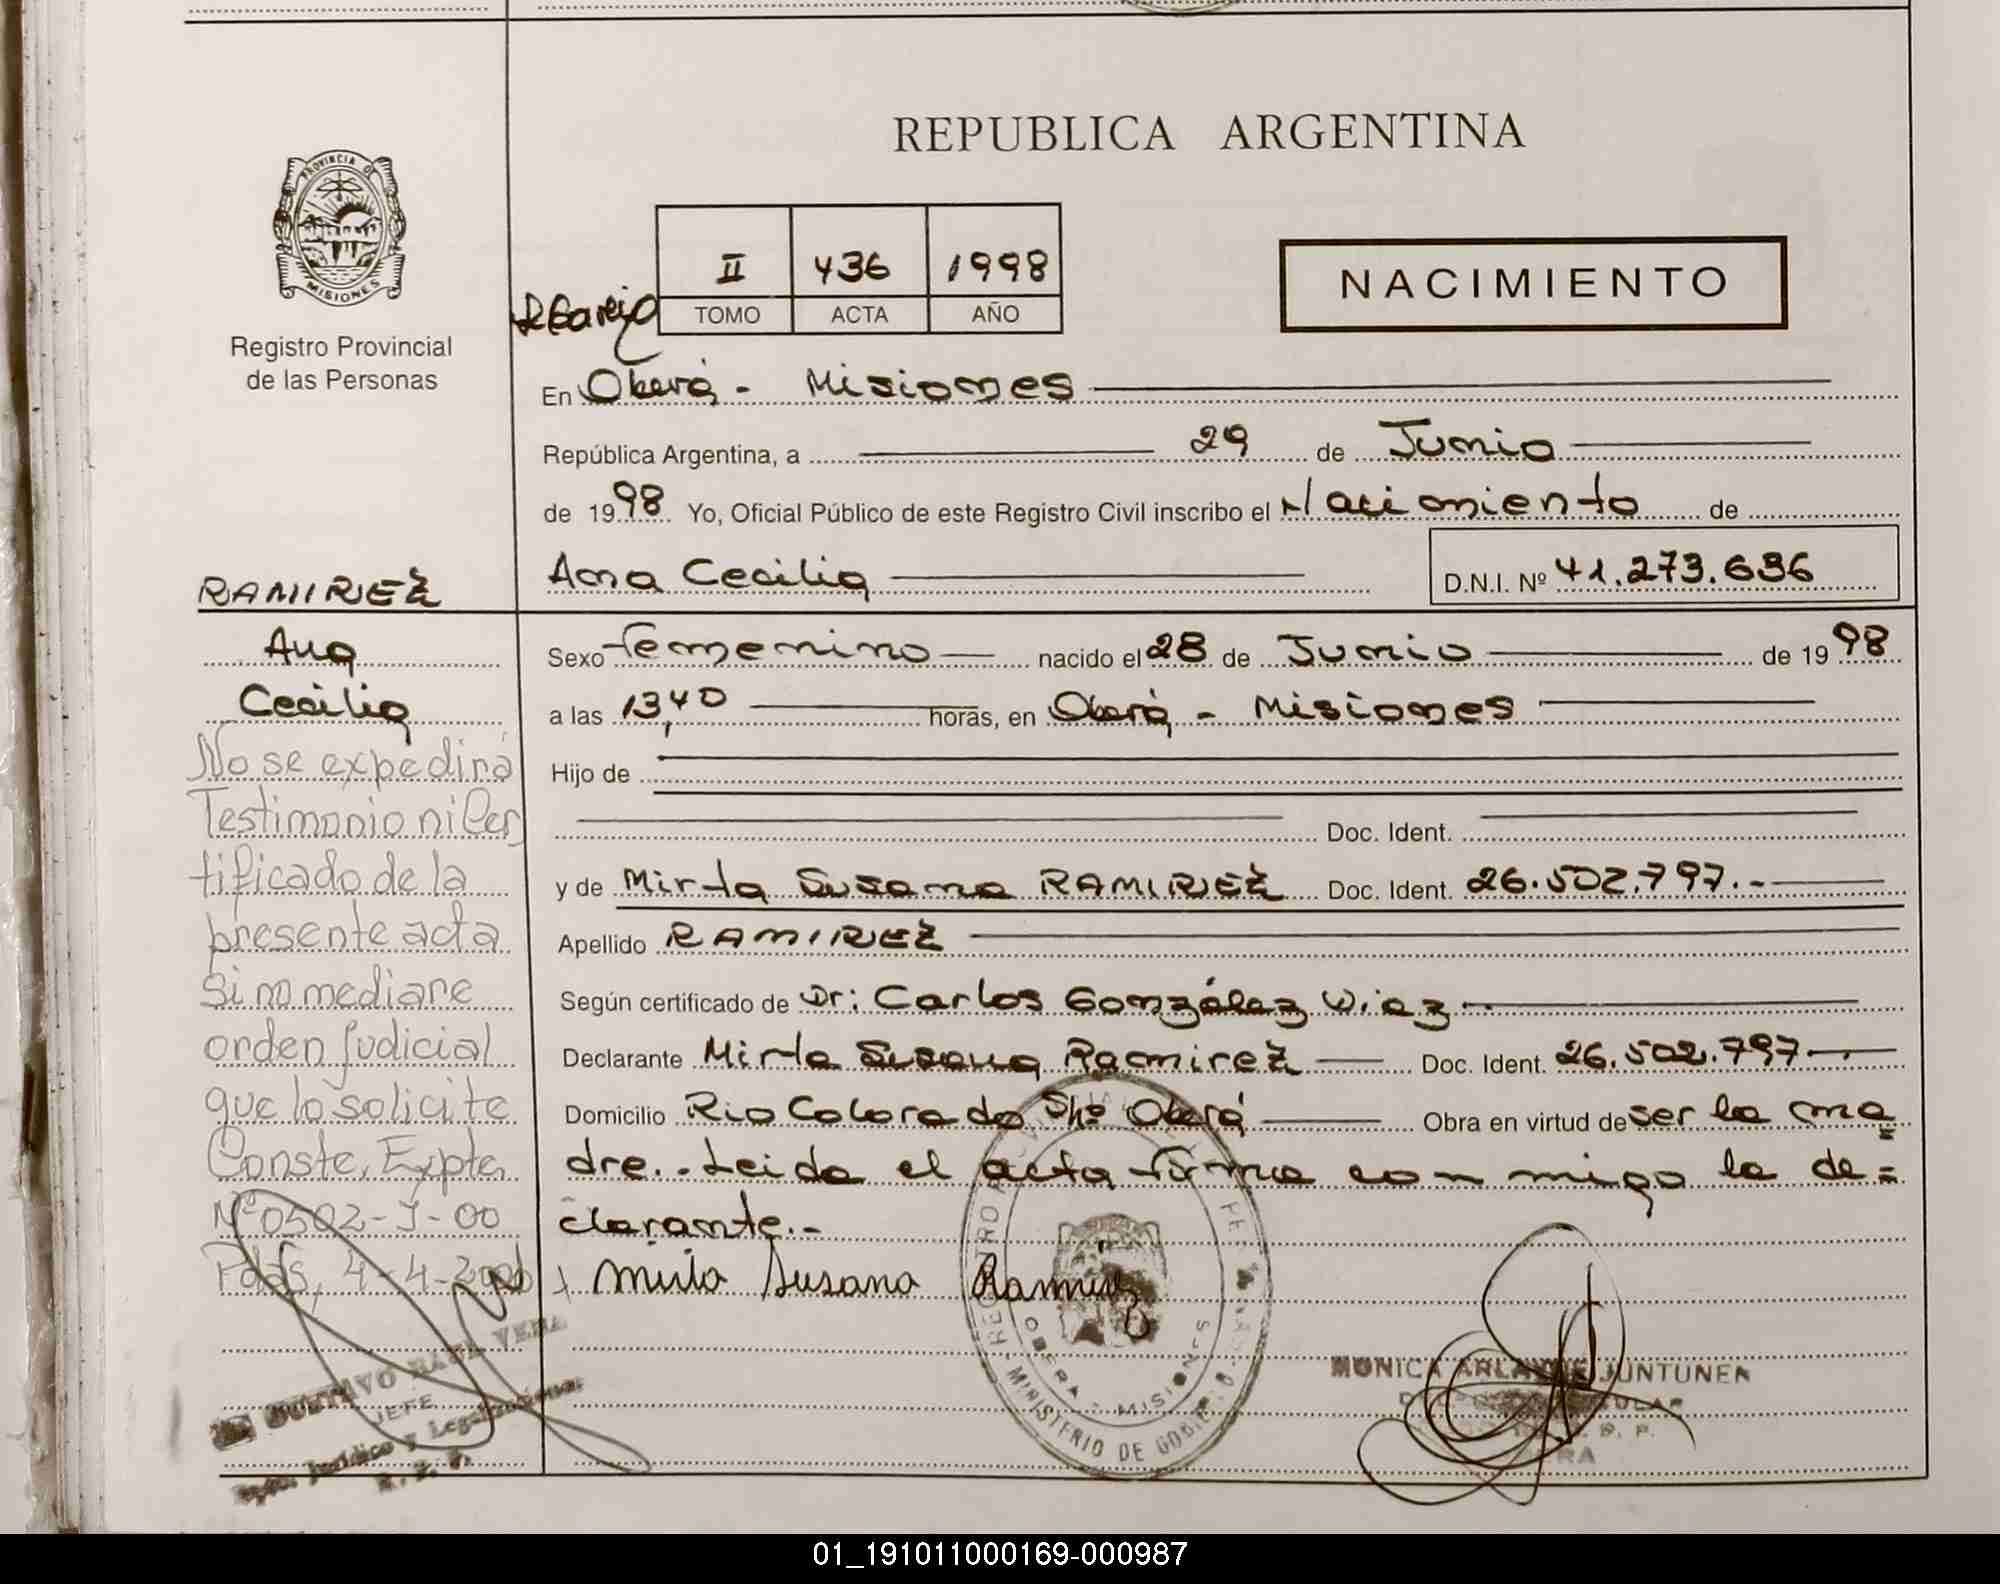 REPUBLICA ARGENTINA
PROVINCIA DE
MISIONES
Registro Provincial
de las Personas
II 436 1998
TOMO ACTA AÑO
NACIMIENTO
En Oberá - Misiones
República Argentina, a 29 de Junio
de 1998 Yo, Oficial Público de este Registro Civil inscribo el Nacimiento de
Ana Cecilia D.N.I. Nº 41.273.636
RAMIREZ
Ana
Cecilia
No se expedirá
Testimonio ni Cer
tificado de la
presente acta
Si no mediare
orden Judicial
que lo solicite
Conste, Expte.
Nº 0502-J-00
Pdas, 4-4-2000
GUSTAVO RAUL VERA
JEFE
Dpto. Jurídico y Legalizaciones
Sexo femenino nacido el 28 de Junio de 1998
a las 13,40 horas, en Oberá - Misiones
Hijo de
Doc. Ident.
y de Mirta Susana RAMIREZ Doc. Ident. 26.502.797.-
Apellido RAMIREZ
Según certificado de Dr: Carlos González Diaz
Declarante Mirta Susana Ramirez Doc. Ident. 26.502.797
Domicilio Rio Colorado S/nº Oberá Obra en virtud de ser la ma
dre.. Leida el acta firma conmigo la de=
clarante.-
Mirta Susana Ramirez
OBERA - MISIONES
MINISTERIO DE GOBIERNO
MONICA ARLAINE JUNTUNEN
01_191011000169-000987